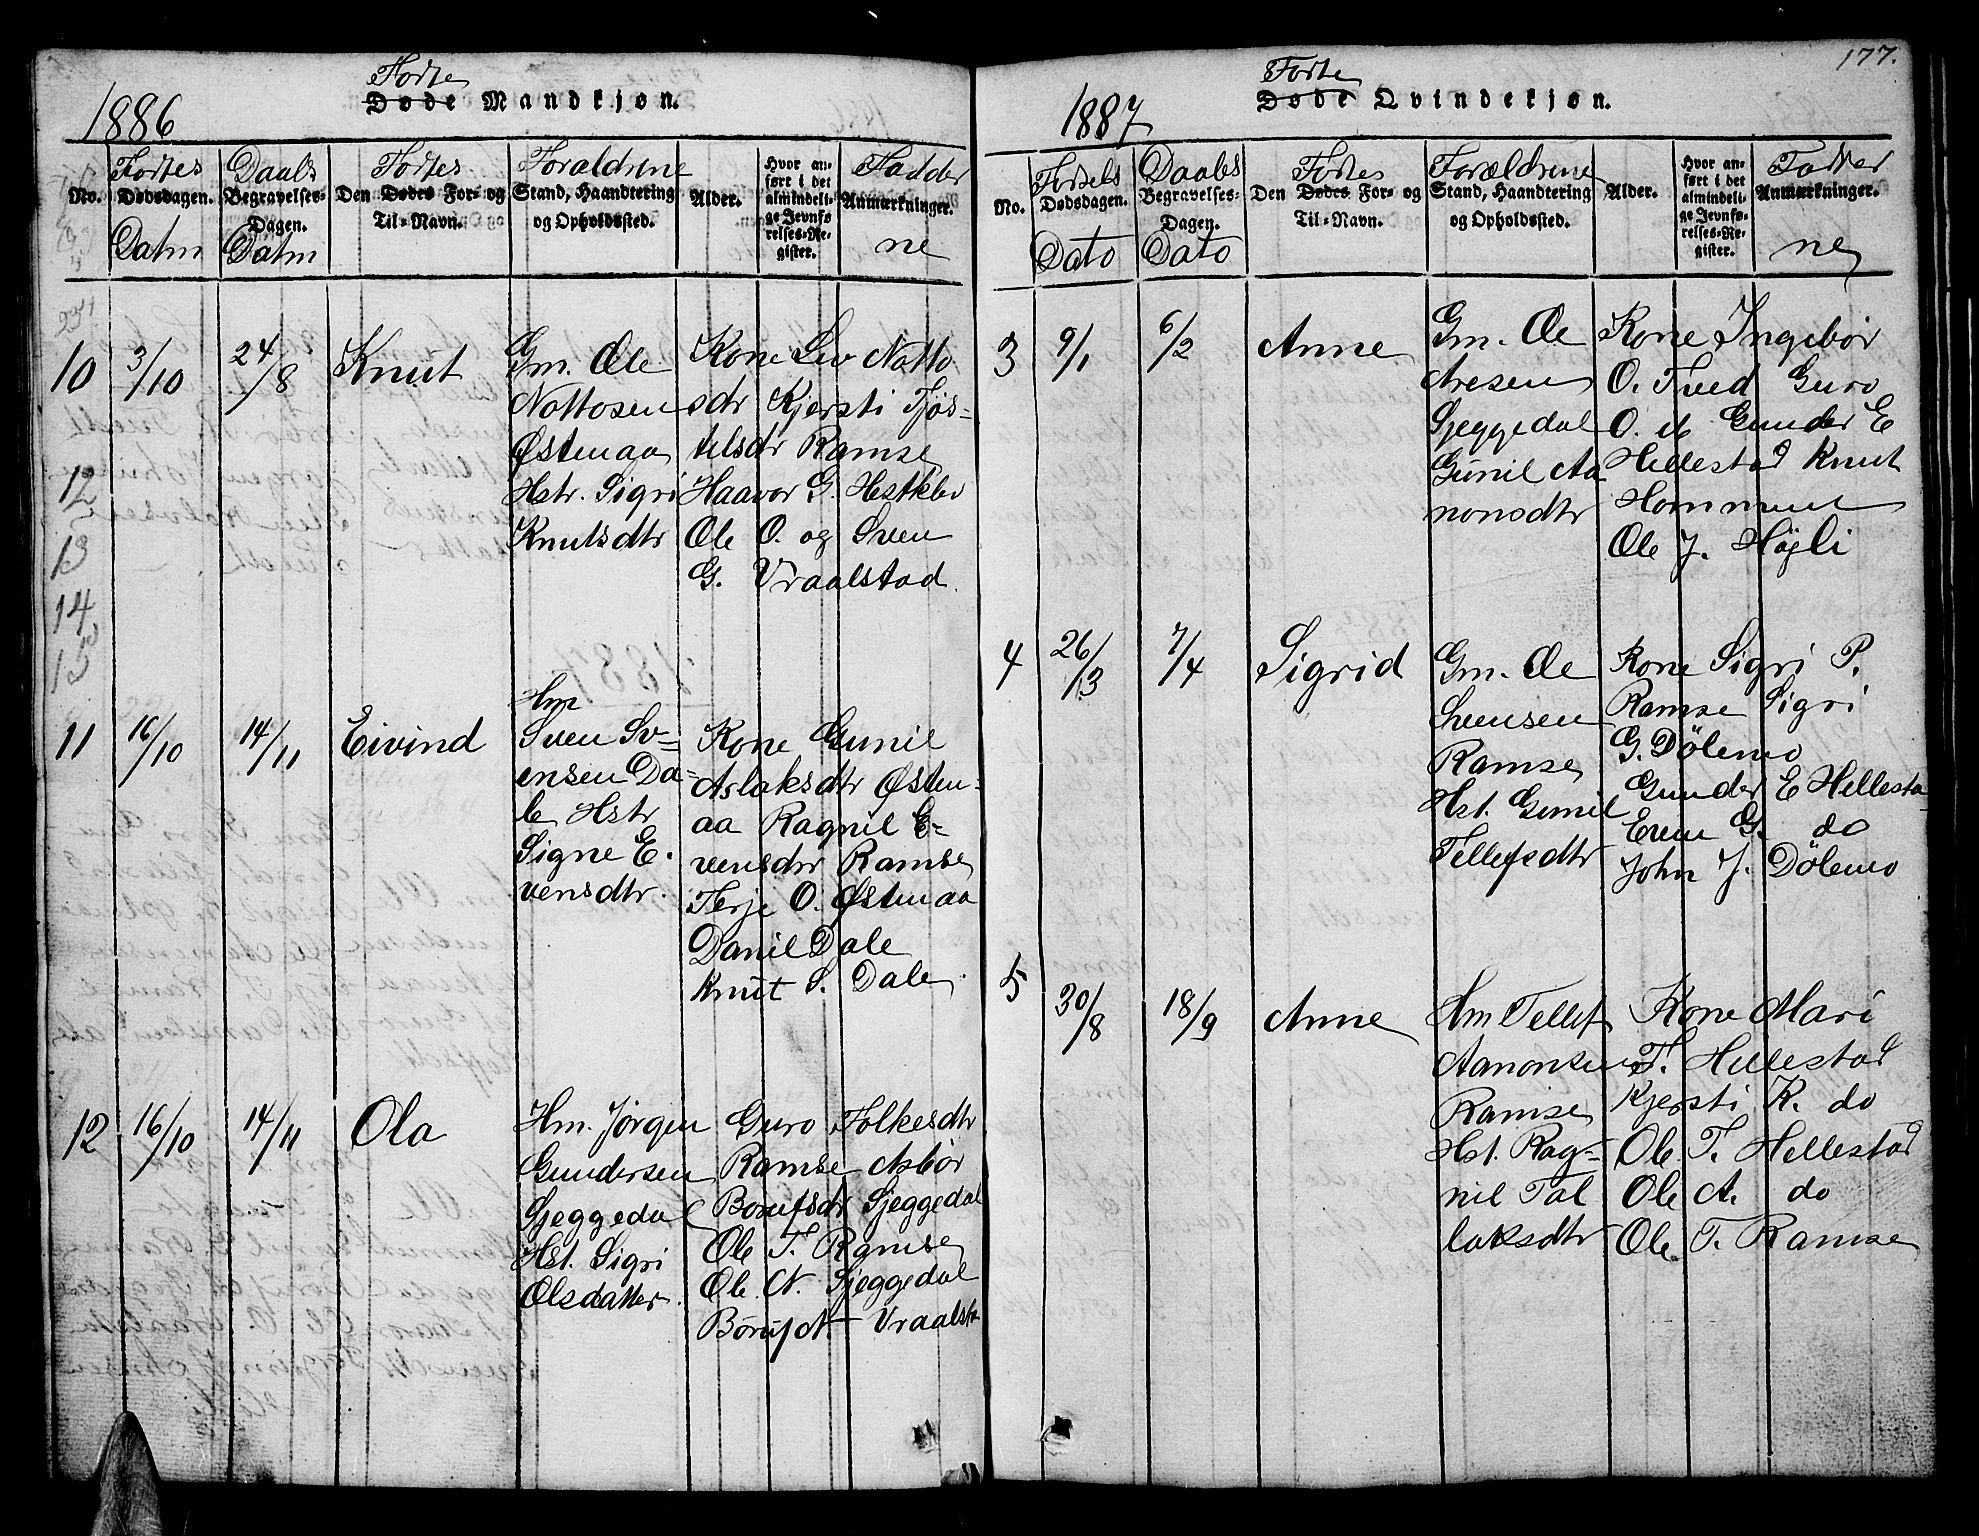 177.
1886
Fødte
Døde Mandkjøn.
No.
Fødtes
Dødsdagen.
Datm
Daabs
Begravelses-
Dagen.
Datm
Fødtes
Den Dødes For- og
Til-Navn.
Foraldrene
Stand, Haandtering
og Opholdssted.
Alder.
Hvor an-
ført i det
almindeli-
ge Jevnfø-
relses-Re-
gister.
Fadder
Anmærkninger.
ne
10
3/10
24/8
Knut
Gm. Ole
Nottosen
Østenaa
Hstr. Sigri
Knutsdtr
Kone Liv Notto
sdr Kjersti Tjøs-
telsdr Ramse
Haavor G. Hestklev
Ole O. og Sven
G. Vraalstad.
12
13
14
15
11
16/10
14/11
Eivind
Hm
Sven Sv-
ensen Da-
le Hstr
Signe E.
vensdtr.
Kone Gunil
Aslaksdtr Østen-
aa Ragnil E-
vensdtr Ramse
Terje O. Østenaa
Danil Dale
Knut S. Dale
12
16/10
14/11
Ola
Hm. Jørgen
Gundersen
Sjeggedal
Hst. Sigri
Olsdatter.
Guro Folkesdtr
Ramse Asbør
Borufsdr Sjeggedal
Ole T. Ramse
Ole A. Sjeggedal
Børuf A. Vraalsta
1887
Fødte
Døde Qvindekjøn.
No.
Fødsels
Dødsdagen.
Dato
Daabs
Begravelses-
Dagen.
Dato
Fødtes
Den Dødes For- og
Til-Navn.
Forældrene
Stand, Haandtering
og Opholdssted.
Alder.
Hvor an-
ført i det
almindeli-
ge Jevnfø-
relses-Re-
gister.
Fadder
Anmærkninger.
ne
3
9/1
6/2
Anne
Gm. Ole
Aresen
Sjeggedal
Gunil Aa
nonsdtr
Kone Ingebør
O. Tved Guro
O. Gunder E
Hellestad Knut
Hommen
Ole J. Høgli
4
26/3
7/4
Sigrid
Gm. Ole
Svensen
Ramse
Hst. Gunil
Tellefsdtr
Kone Sigri P.
Ramse Sigri
G. Dölemo
Gunder E Hellesta
Even G. do
John J. Dölemo
5
30/8
18/9
Anne
Hm Tellef
Aanonsen
Ramse
Hst. Rag-
nil Tal
laksdtr
Kone Mari
T. Hellestad
Kjersti K. do
Ole T. Hellestad
Ole A. do
Ole T. Ramse